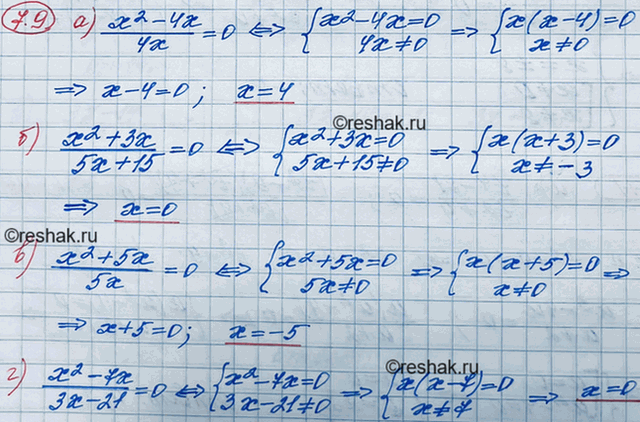 7.9 а) (x²-4x)/(4x) = 0 ⟺ {x²-4x=0; 4x≠0 ⟹ {x(x-4)=0; x≠0
⟹ x-4=0; x=4
©reshak.ru
б) (x²+3x)/(5x+15) = 0 ⟺ {x²+3x=0; 5x+15≠0 ⟹ {x(x+3)=0; x≠-3
⟹ x=0
©reshak.ru
в) (x²+5x)/(5x) = 0 ⟺ {x²+5x=0; 5x≠0 ⟹ {x(x+5)=0; x≠0 ⟹
⟹ x+5=0; x=-5
©reshak.ru
г) (x²-7x)/(3x-21) = 0 ⟺ {x²-7x=0; 3x-21≠0 ⟹ {x(x-7)=0; x≠7 ⟹ x=0